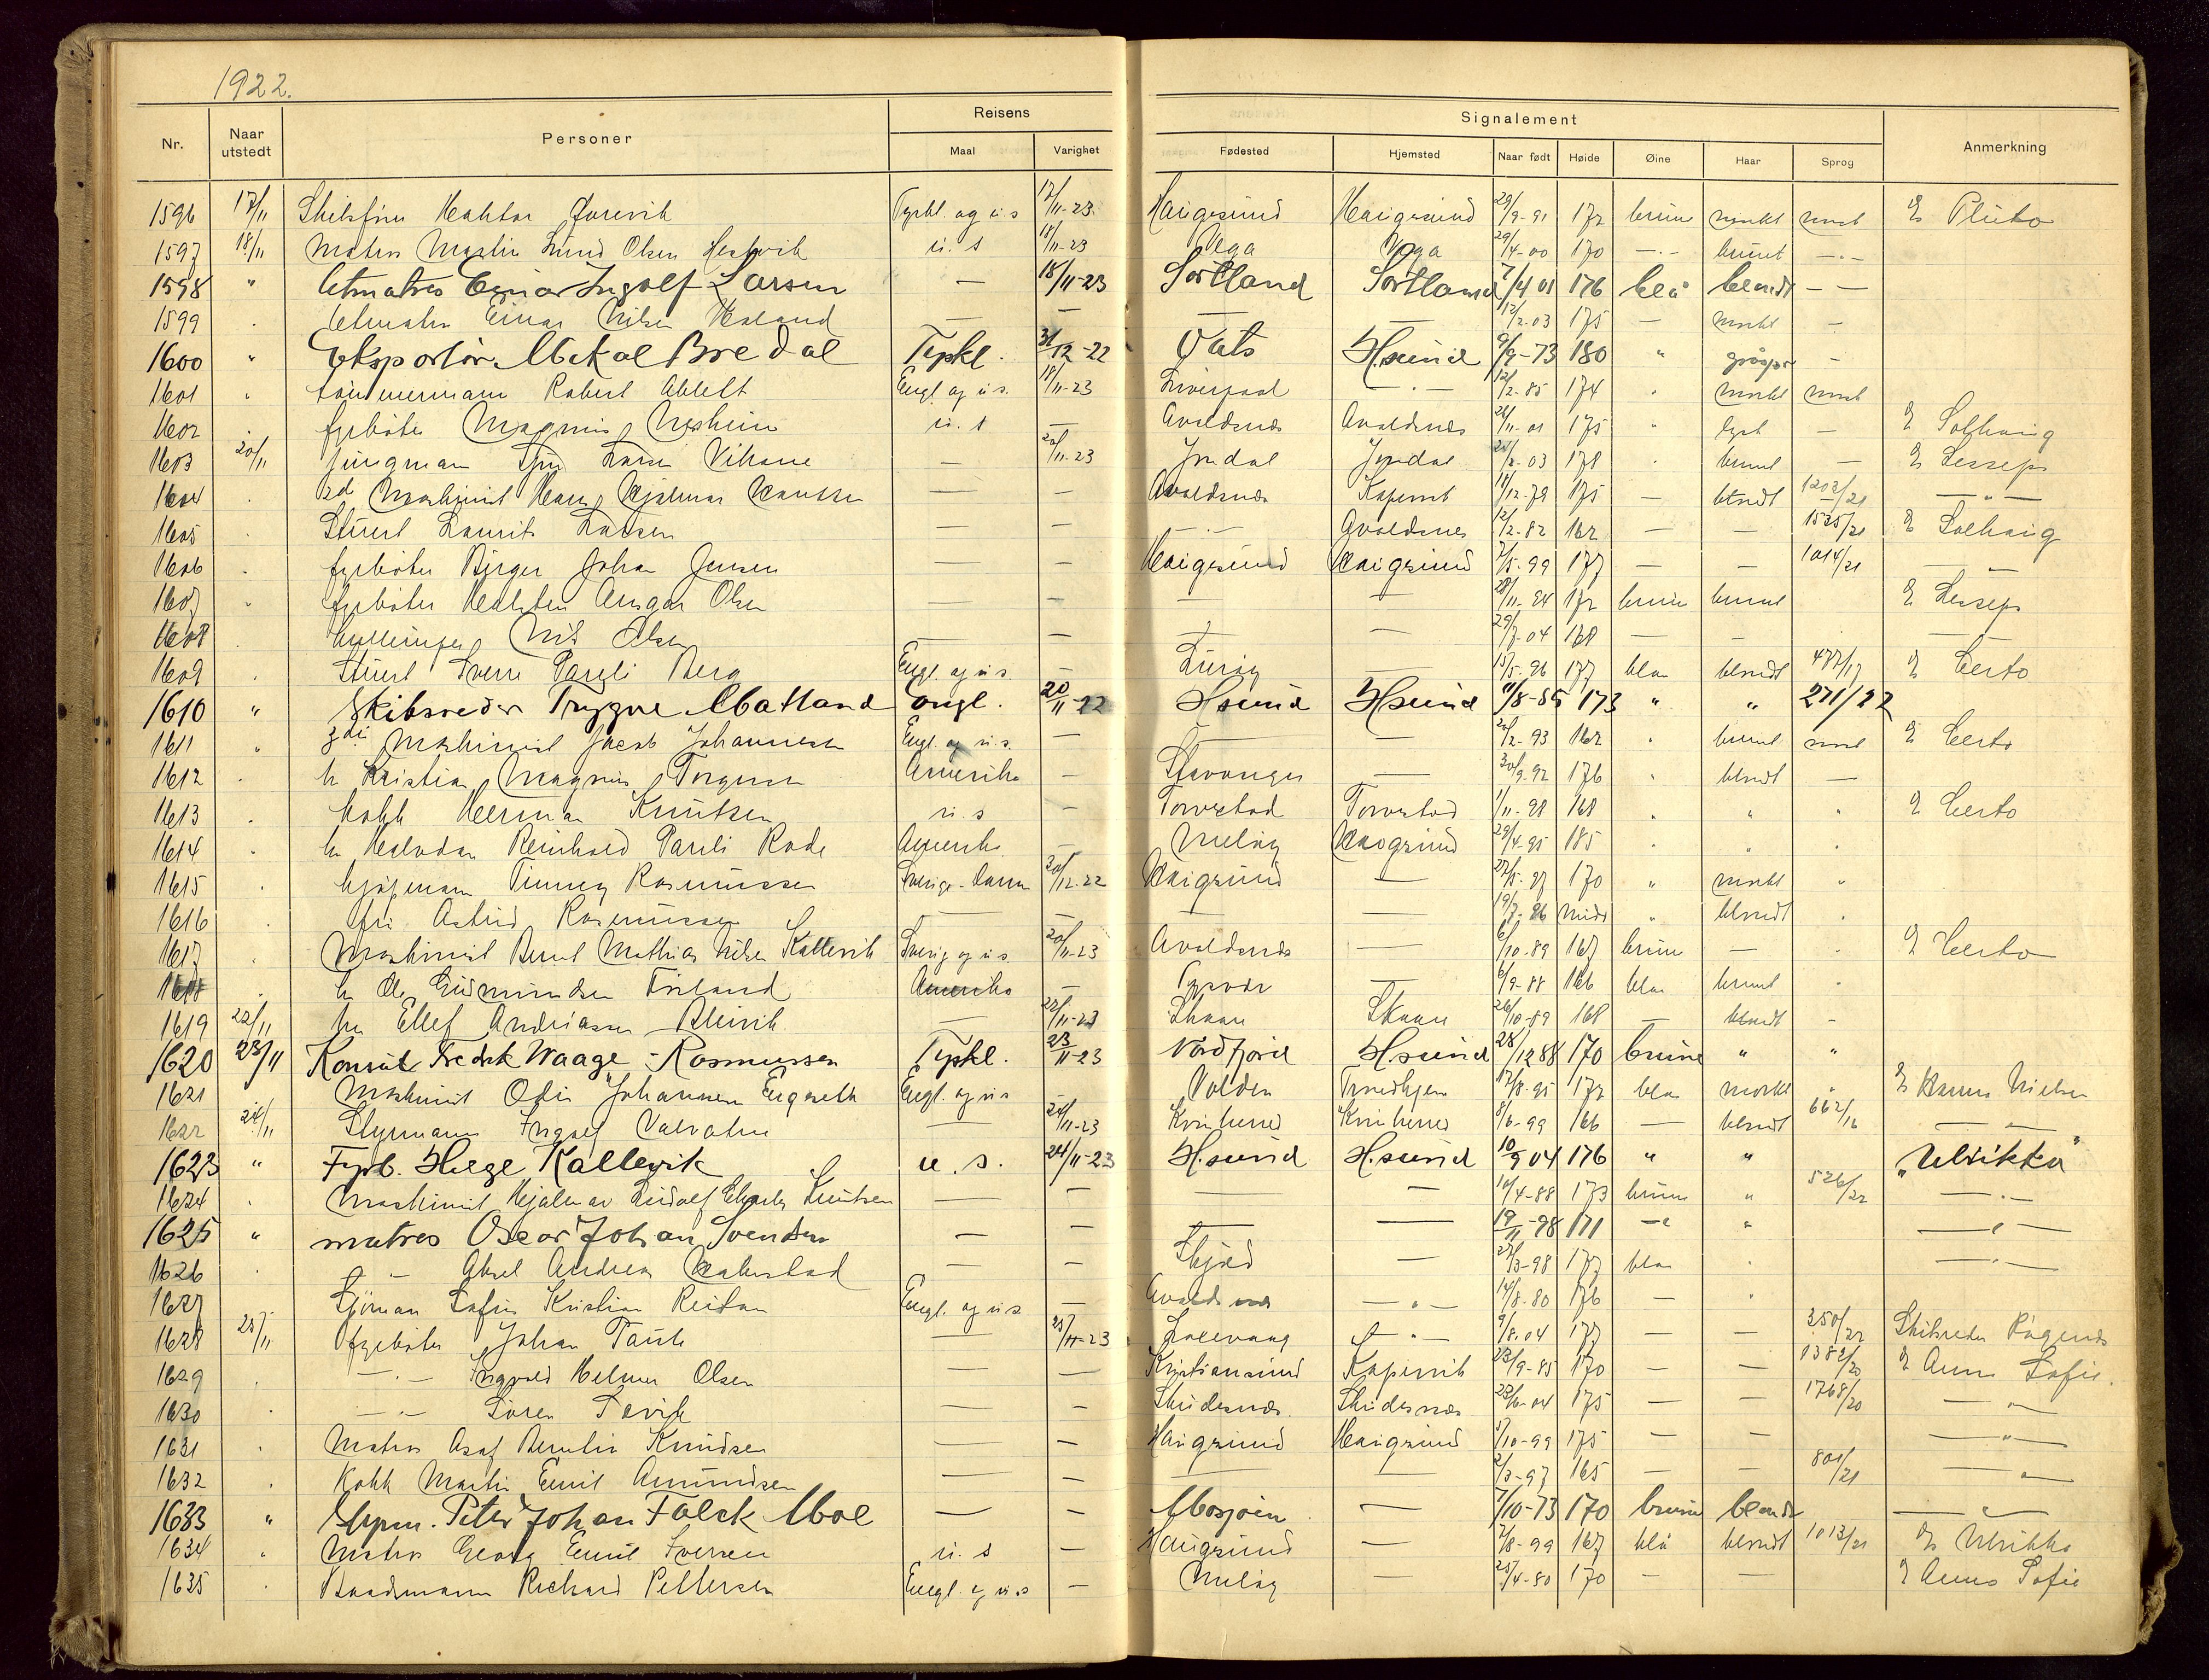 1922.
Nr. Naar utstedt Personer Reisens Maal Varighet Signalement Fødested Hjemsted Naar født Høide Øine Haar Sprog Anmerkning
1596 17/11 Haugesund Haugesund 29/9-91 172 brune mørkt norsk Pluto
1597 18/11 Matros Martin Lund Olsen u. s 18/11-23 Vega Vega 29/4-00 170 —"— brunt —"—
1598 " Letmatros Einar Ingolf Larsen — 18/11-23 Sortland Sortland 7/4 01 176 blå blondt — —
1599 " Letmatros Einar Nilsen — — — 12/2-03 175 — mørkt —
1600 " Eksportør Mikal Bredal Tyskl. 31/12-22 Vats H.sund 9/9-73 180 " —
1601 " tømmermann Robert Engl. og u. s. 18/11-23 Liverpool —"— 12/2-85 174 " mørkt norsk
1602 " fyrbøter Magnus Nesheim u. s — Avaldsnes Avaldsnes 175 " lyst — Solhaug
1603 20/11 jungmann Lars Vikane — 20/11-23 178 " brunt — Lesseps
1604 " 2d Maskinist Hans Hjalmar Knutsen — — Avaldsnes Kopervik 175 — blondt 1202/21 —"—
1605 " Stuert Laurits Larsen — — —"— Avaldsnes 12/2-82 162 — — 1525/21 Solhaug
1606 " fyrbøter Birger Johan Jensen — — Haugesund Haugesund 7/5-99 177 — — 1014/21 —"—
1607 " fyrbøter Ansgar Olsen — — — — 172 brune brunt Lesseps
1608 " Nils Olsen — — — — 168 — — —
1609 " Stuert Sverre Pareli Berg Engl. og u. s. — — 15/5-96 177 blaa blondt 477/17 Certo
1610 " Skibsreder Trygve Matland Engl. 20/11-22 H.sund H.sund 11/8-85 173 " " 271/22
1611 " 3die Maskinist Jacob Johannessen Engl. og u. s. — — — 162 " brunt norsk Certo
1612 " hr Kristian Magnus Torgersen Amerika — Stavanger — 30/9-92 176 " blondt —
1613 " Kokk Herman Knutsen u. s — Torvestad Torvestad 1/11-98 168 " " " Certo
1614 " hr Reinhold Pareli Rode Amerika — Haugesund 29/4-95 185 " " "
1615 " Kjøpmann Rasmussen Sverige-Danm 30/12-22 Haugesund — 170 " mørkt "
1616 " fru Astrid Rasmussen — — — — " blondt "
1617 " Maskinist Bernt Mathias Nilsen Kallevik Sverig og u. s. 20/11-23 Avaldsnes — 6/10-89 167 brune — " Certo
1618 " hr Gudmundsen Amerika — Tysvær — 6/9-88 166 blaa brunt "
1619 22/11 hr Ellef Andreassen — 22/11-23 Skaare Skaare 26/10-89 168 — blondt -
1620 23/11 Konsul Fredrik Waage-Rasmussen Tyskl. 23/11-23 Nordfjord H.sund 28/12 88 170 brune " "
1621 " Maskinist Johannesen Engeseth Engl. og u. s Volden Trondhjem 17/8-95 172 blaa mørkt " Hanna Nielsen
1622 24/11 Styrmann Ingolf — 24/11-23 Kvinherred Kvinherred 8/6-99 166 — blondt 662/16 —"—
1623 " Fyrb. Helge Kallevik u. s. 24/11-23 H.sund H.sund 10/9 04 176 " " "Ulrikka"
1624 " Maskinist Hjalmar Ludolf Charles Knutsen — — — — 10/4-88 173 brune " 526/22 —"—
1625 " matros Oscar Johan Svendsen — — — — 19/11-98 171 —"— " —"—
1626 " —"— Aksel Andreas — — Skjold — 27/3-98 177 blaa " —"—
1627 " Sjømann Kristian Reitan Engl. og u. s — Avaldsnes —"— 14/8-80 176 — "
1628 25/11 fyrbøter Johan — 25/11-23 —"— 9/8-04 177 — — 250/22 Skibsreder
1629 " —"— Ingvald Helmer Olsen — — Kristiansund Kopervik 23/9-85 170 — — 1382/20 Anna Sofie.
1630 " —"— Søren — — Skudesnes. Skudesnes 23/6-04 175 — — 1768/20 —"—
1631 " Matros Knudsen — — Haugesund Haugesund 5/10-99 175 — — —"—
1632 " Kokk Martin Emil Amundsen — — — — 2/3-97 165 — — 801/21 —"—
1633 " Styrm. Peter Johan Falck Moe — — Mosjøen — 7/10-73 170 brune blondt —"—
1634 " Matros Georg Emil Iversen u. s — Haugesund — 7/8-99 167 blå blondt 1013/21 Ulrikka
1635 " Baadsmann Richard Pettersen Engl. og u. s — — 25/4-80 170 — — Anna Sofie